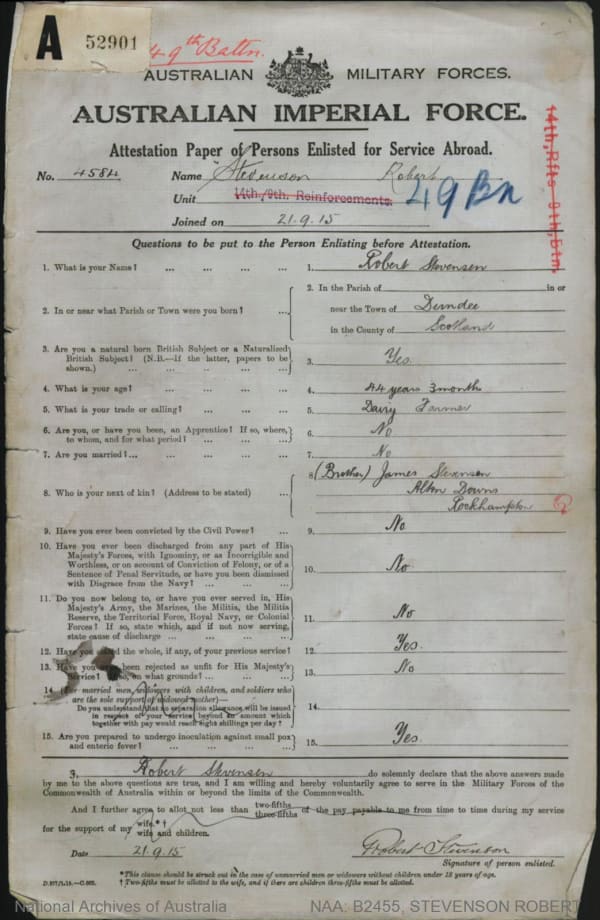 A 52901
49th Battn.
AUSTRALIAN MILITARY FORCES.
AUSTRALIAN IMPERIAL FORCE.
Attestation Paper of Persons Enlisted for Service Abroad.
No. 4584 Name Stevenson Robert
Unit 14th/9th. Reinforcements. 49 Bn
Joined on 21.9.15
14th, Rfts - 9th, Btn
Questions to be put to the Person Enlisting before Attestation.
1. What is your Name? ... ... ... ... 1. Robert Stevenson
2. In or near what Parish or Town were you born? ... 2. In the Parish of in or
near the Town of Dundee
in the County of Scotland
3. Are you a natural born British Subject or a Naturalized
British Subject? (N.B.—If the latter, papers to be
shown.) ... ... ... ... 3. Yes.
4. What is your age? ... ... ... ... 4. 44 years 3 month
5. What is your trade or calling? ... ... ... 5. Dairy Farmer
6. Are you, or have you been, an Apprentice? If so, where,
to whom, and for what period? ... ... ... 6. No
7. Are you married? ... ... ... ... 7. No
8. Who is your next of kin? (Address to be stated) ... 8 (Brother) James Stevenson
Alton Downs
Rockhampton
9. Have you ever been convicted by the Civil Power? ... 9. No
10. Have you ever been discharged from any part of His
Majesty's Forces, with Ignominy, or as Incorrigible and
Worthless, or on account of Conviction of Felony, or of a
Sentence of Penal Servitude, or have you been dismissed
with Disgrace from the Navy? ... ... ... 10. No
11. Do you now belong to, or have you ever served in, His
Majesty's Army, the Marines, the Militia, the Militia
Reserve, the Territorial Force, Royal Navy, or Colonial
Forces? If so, state which, and if not now serving,
state cause of discharge ... ... ... ... 11. No
12. Have you the whole, if any, of your previous service? 12. Yes.
13. Have you been rejected as unfit for His Majesty's
Service? on what grounds? ... ... 13. No
14. (For married men, widowers with children, and soldiers who
are the sole support of widowed mother)—
Do you understand that no separation allowance will be issued
in respect of your service beyond an amount which
together with pay would reach eight shillings per day? 14.
15. Are you prepared to undergo inoculation against small pox
and enteric fever? ... ... ... ... 15. Yes.
I, Robert Stevenson do solemnly declare that the above answers made
by me to the above questions are true, and I am willing and hereby voluntarily agree to serve in the Military Forces of the
Commonwealth of Australia within or beyond the limits of the Commonwealth.
And I further agree to allot not less than two-fifths three-fifths of the pay payable to me from time to time during my service
for the support of my wife.*†
wife and children.
Date 21.9.15 Robert Stevenson
Signature of person enlisted.
*This clause should be struck out in the case of unmarried men or widowers without children under 18 years of age.
† Two-fifths must be allotted to the wife, and if there are children three-fifths must be allotted.
National Archives of Australia NAA: B2455, STEVENSON ROBERT